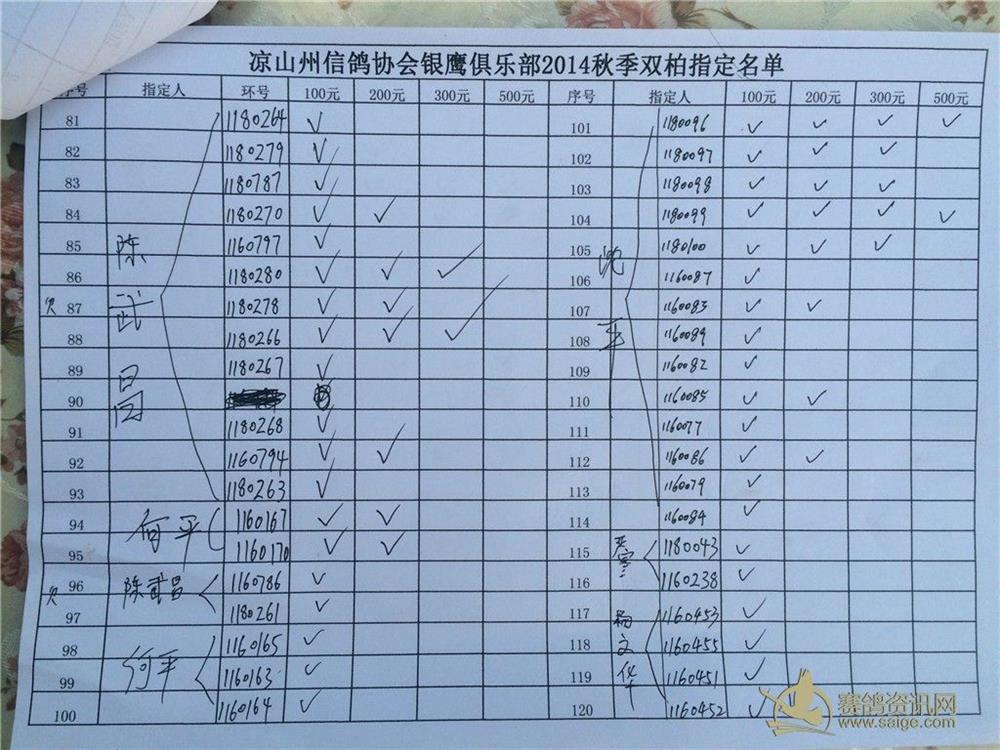 凉山州信鸽协会银鹰俱乐部2014秋季双柏指定名单
序号 指定人 环号 100元 200元 300元 500元 序号 指定人 100元 200元 300元 500元
81 1180264 ✓ 101 1180096 ✓ ✓ ✓ ✓
82 1180279 ✓ 102 1180097 ✓ ✓ ✓
83 1180787 ✓ 103 1180098 ✓ ✓ ✓
84 1180270 ✓ ✓ 104 1180099 ✓ ✓ ✓ ✓
85 陈武昌 1160797 ✓ 105 1180100 ✓ ✓ ✓
86 1180280 ✓ ✓ ✓ 106 1160087 ✓
欠 87 1180278 ✓ ✓ 107 1160083 ✓ ✓
88 1180266 ✓ ✓ ✓ 108 1160089 ✓
89 1180267 ✓ 109 1160082 ✓
90 110 1160085 ✓ ✓
91 1180268 ✓ 111 1160077 ✓
92 1160794 ✓ ✓ 112 1160086 ✓ ✓
93 1180263 ✓ 113 1160079 ✓
94 何平 1160167 ✓ ✓ 114 1160084 ✓
95 1160170 ✓ ✓ 115 1180043 ✓
欠 96 陈武昌 1160786 ✓ 116 1160238 ✓
97 1180261 ✓ 117 杨文华 1160453 ✓
98 何平 1160165 ✓ 118 1160455 ✓
99 1160163 ✓ 119 1160451 ✓
100 1160164 ✓ 120 1160452 ✓
赛鸽资讯网
www.saige.com